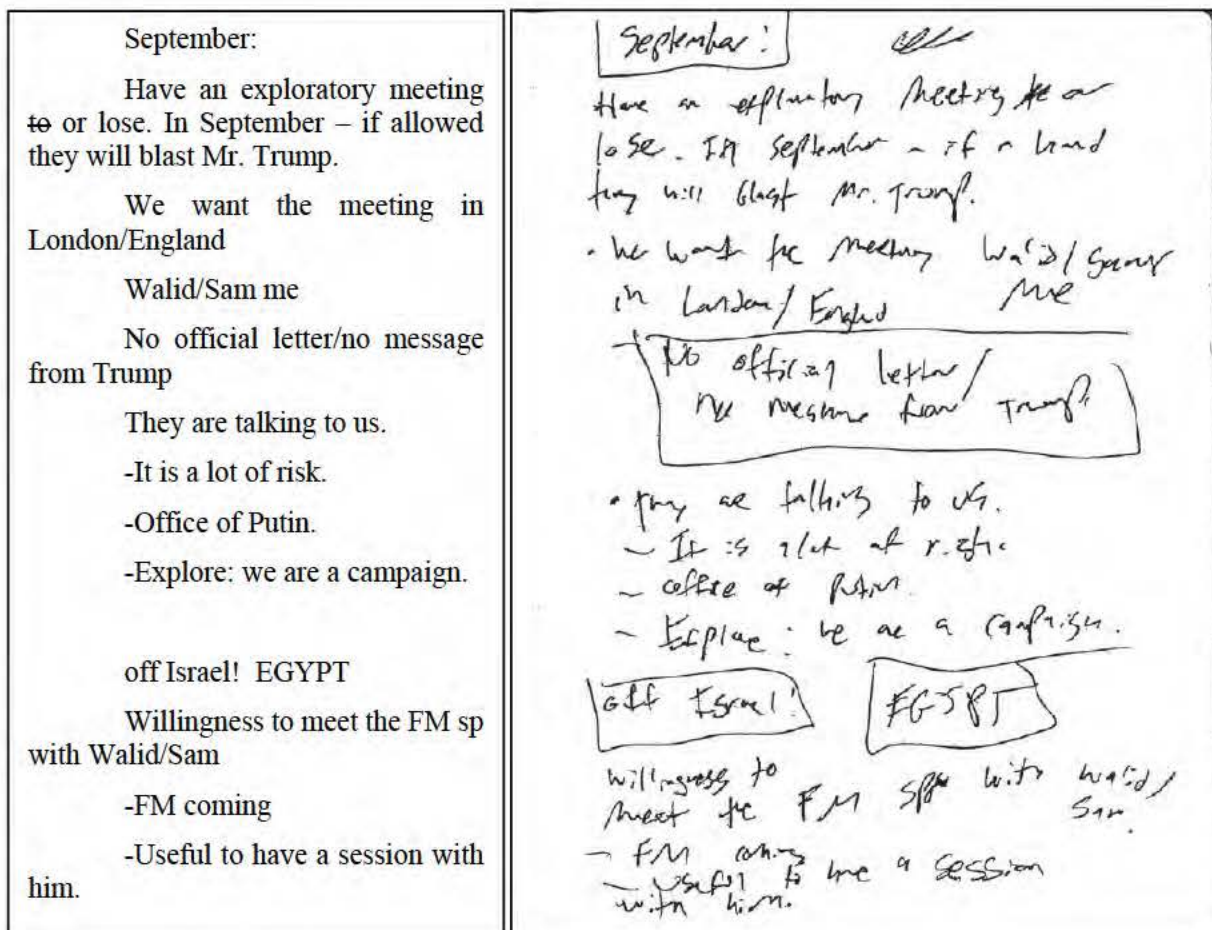 September:
Have an exploratory meeting
to or lose. In September – if allowed
they will blast Mr. Trump.
We want the meeting in
London/England
Walid/Sam me
No official letter/no message
from Trump
They are talking to us.
-It is a lot of risk.
-Office of Putin.
-Explore: we are a campaign.
off Israel! EGYPT
Willingness to meet the FM sp
with Walid/Sam
-FM coming
-Useful to have a session with
him.
September:
Have an exploratory meeting to or
lose. In September - if allowed
they will blast Mr. Trump.
• We want the meeting Walid/Sam
in London/England me
- No official letter/
no message from Trump
• They are talking to us.
- It is a lot of risk.
- Office of Putin.
- Explore: we are a campaign.
off Israel! EGYPT
Willingness to
meet the FM sp with Walid/
Sam.
- FM coming
- Useful to have a session
with him.